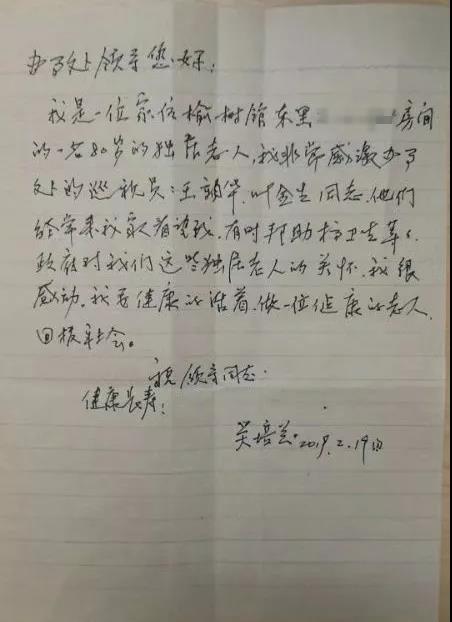 办事处领导您好：
我是一位家住榆树馆东里 房间
的一名80岁的独居老人，我非常感激办事
处的巡视员：王 华、叶金生同志，他们
经常来我家看望我，有时帮助搞卫生等等。
政府对我们这些独居老人的关怀，我很
感动。我要健康的活着，做一位健康的老人，
回报社会。
祝领导同志：
健康长寿！
吴培兰 2019.2.19日